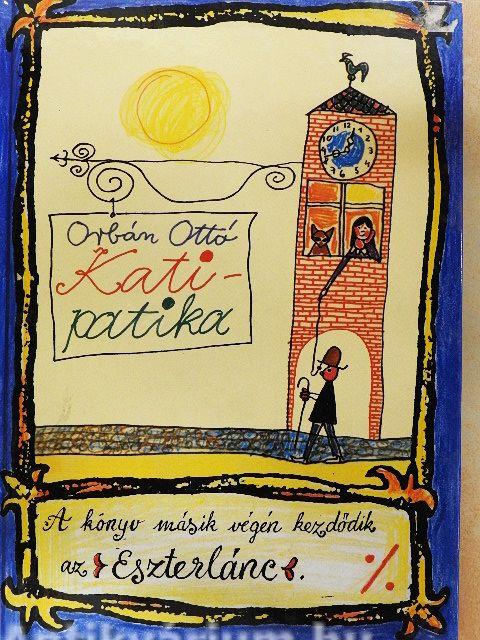 Orbán Ottó
Kati-
patika
A könyv másik végén kezdődik
az Eszterlánc.